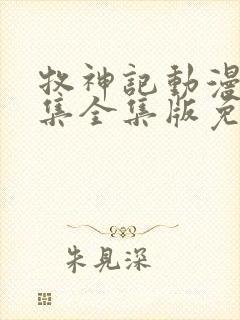 牧神記動漫
集全集版免
朱見深